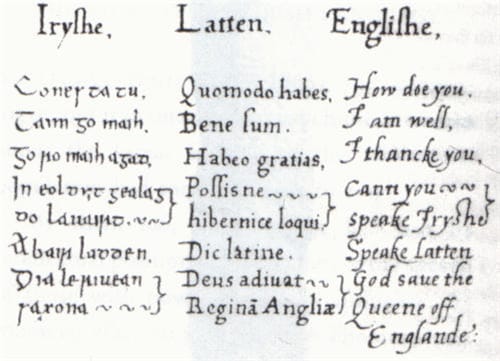 Iryshe. Latten. Englishe.
Cones ta tu. Quomodo habes. How doe you.
Taim go maih. Bene sum. I am well.
Go ro maih agad, Habeo gratias, I thancke you.
In gealag Possis ne Cann you
do lavairt. hibernice loqui. speake Iryshe
Abair ladden, Dic latine. Speake latten
Dia le riuean Deus adiuat God save the
saxona Reginā Angliæ Queene off
Englande.